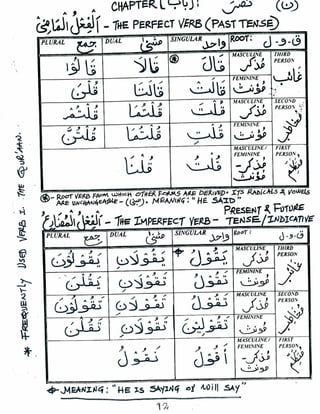 CHAPTER [باب] نَصَرَ (ن)
اَلْفِعْلُ الْمَاضِيْ - THE PERFECT VERB (PAST TENSE)
PLURAL جمع DUAL مثنى SINGULAR واحد ROOT: ق.و.ل
قَالُوْا قَالَا قَالَ MASCULINE مذكر THIRD PERSON غائب
قُلْنَ قَالَتَا قَالَتْ FEMININE مؤنث
قُلْتُمْ قُلْتُمَا قُلْتَ MASCULINE مذكر SECOND PERSON مخاطب
قُلْتُنَّ قُلْتُمَا قُلْتِ FEMININE مؤنث
قُلْنَا قُلْتُ MASCULINE/FEMININE مذكر مؤنث FIRST PERSON متكلم
- ROOT VERB FROM WHICH OTHER FORMS ARE DERIVED. ITS RADICALS & VOWELS
ARE UNCHANGEABLE - (مبني). MEANING: "HE SAID"
اَلْفِعْلُ الْمُضَارِعُ - THE IMPERFECT VERB - PRESENT & FUTURE TENSE/INDICATIVE
PLURAL جمع DUAL مثنى SINGULAR واحد ROOT: ق.و.ل
يَقُوْلُوْنَ يَقُوْلَانِ يَقُوْلُ MASCULINE مذكر THIRD PERSON غائب
يَقُلْنَ تَقُوْلَانِ تَقُوْلُ FEMININE مؤنث
تَقُوْلُوْنَ تَقُوْلَانِ تَقُوْلُ MASCULINE مذكر SECOND PERSON مخاطب
تَقُلْنَ تَقُوْلَانِ تَقُوْلِيْنَ FEMININE مؤنث
نَقُوْلُ أَقُوْلُ MASCULINE/FEMININE مذكر مؤنث FIRST PERSON متكلم
MEANING: "HE IS SAYING OR WILL SAY"
12
* FREQUENTLY USED VERB IN THE QUR'AAN.